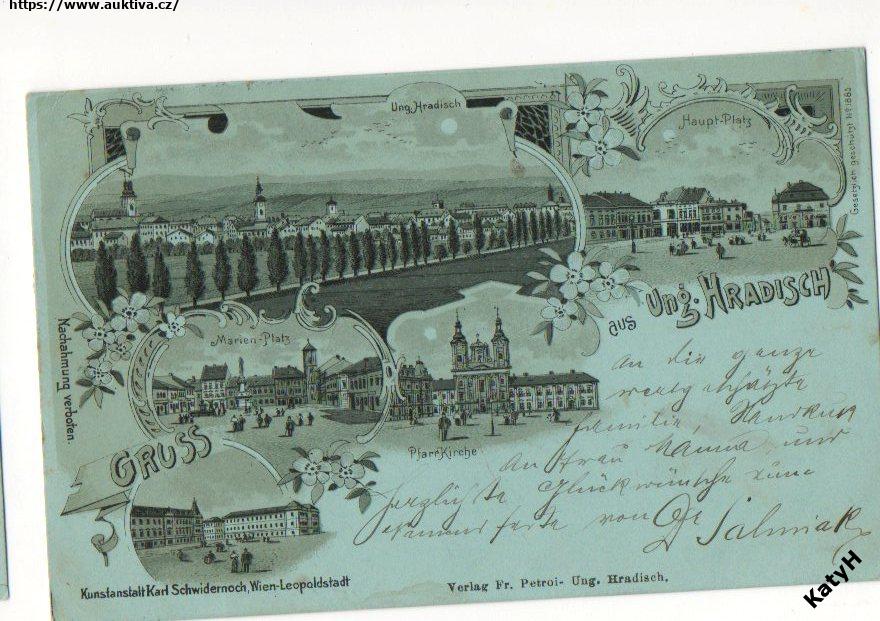 https://www.auktiva.cz/
Ung. Hradisch
Haupt-Platz
Gesetzlich geschützt No 1885
aus Ung. HRADISCH
Marien-Platz
Pfarr Kirche
Nachahmung verboten.
GRUSS
An die ganze
familie, Handkuss
an Frau Mama und
herzlichste Glückwünsche zum
feste von
Kunstanstalt Karl Schwidernoch, Wien-Leopoldstadt
Verlag Fr. Petroi- Ung. Hradisch.
KatyH